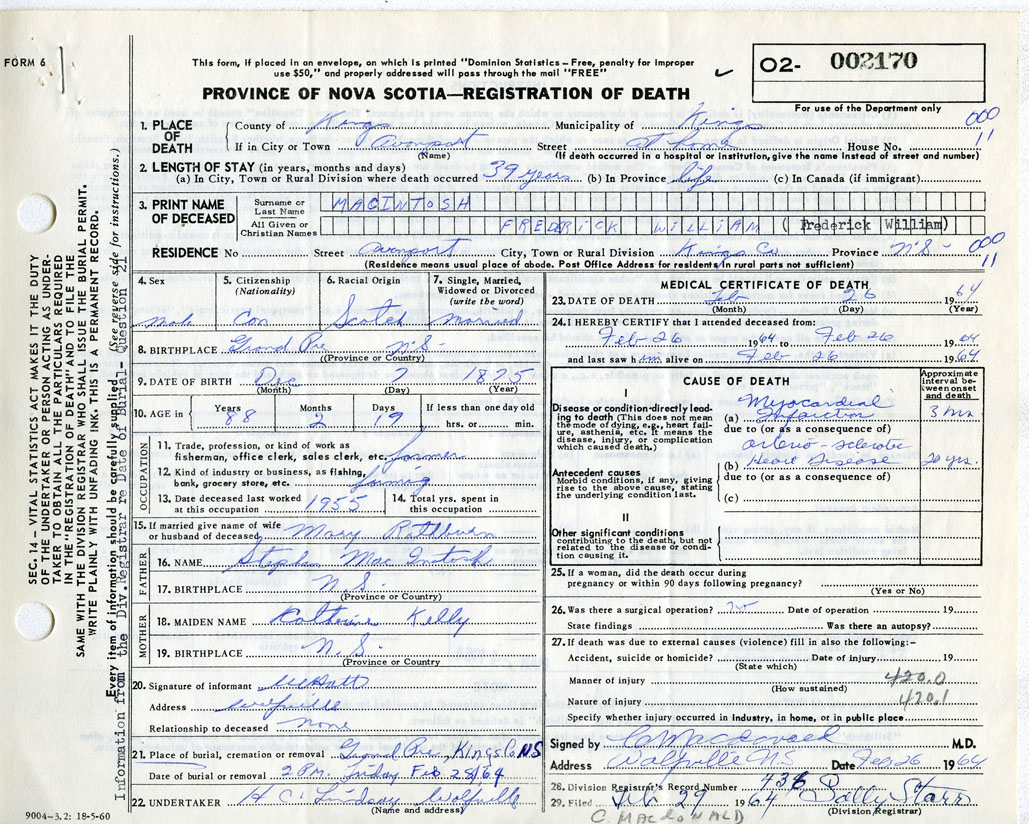 FORM 6
This form, if placed in an envelope, on which is printed "Dominion Statistics – Free, penalty for improper
use $50," and properly addressed will pass through the mail "FREE"
PROVINCE OF NOVA SCOTIA—REGISTRATION OF DEATH
O2- 002170
For use of the Department only
SEC. 14 – VITAL STATISTICS ACT MAKES IT THE DUTY
OF THE UNDERTAKER OR PERSON ACTING AS UNDER-
TAKER TO OBTAIN ALL THE PARTICULARS REQUIRED
IN THE "REGISTRATION OF DEATH" AND TO FILE THE
SAME WITH THE DIVISION REGISTRAR WHO SHALL ISSUE THE BURIAL PERMIT.
WRITE PLAINLY WITH UNFADING INK. THIS IS A PERMANENT RECORD.
Every item of information should be carefully supplied. (See reverse side for instructions.)
Information from the Div. Registrar re Date of Burial- Question 21
1. PLACE OF DEATH
County of Kings Municipality of Kings 000
If in City or Town Avonport Street at home House No. 11
(Name) (If death occurred in a hospital or institution, give the name instead of street and number)
2. LENGTH OF STAY (in years, months and days)
(a) In City, Town or Rural Division where death occurred 39 years (b) In Province life (c) In Canada (if immigrant)
3. PRINT NAME OF DECEASED
Surname or Last Name MACINTOSH
All Given or Christian Names FREDERICK WILLIAM (Frederick William)
RESIDENCE No Street Avonport City, Town or Rural Division Kings Co Province N.S- 000
11
(Residence means usual place of abode. Post Office Address for residents in rural parts not sufficient)
4. Sex Male
5. Citizenship (Nationality) Can
6. Racial Origin Scotch
7. Single, Married, Widowed or Divorced (write the word) Married
8. BIRTHPLACE Grand Pre N.S.
(Province or Country)
9. DATE OF BIRTH Dec 7 1875
(Month) (Day) (Year)
10. AGE in Years 88 Months 2 Days 19 If less than one day old
hrs. or min.
OCCUPATION
11. Trade, profession, or kind of work as
fisherman, office clerk, sales clerk, etc. farmer
12. Kind of industry or business, as fishing,
bank, grocery store, etc. farming
13. Date deceased last worked at this occupation 1955
14. Total yrs. spent in this occupation
15. If married give name of wife or husband of deceased Mary Rathburn
FATHER
16. NAME Stephen MacIntosh
17. BIRTHPLACE N.S.
(Province or Country)
MOTHER
18. MAIDEN NAME Katherine Kelly
19. BIRTHPLACE N.S.
(Province or Country)
20. Signature of informant
Address Wolfville
Relationship to deceased None
21. Place of burial, cremation or removal Grand Pre, Kings Co NS
Date of burial or removal 2 P.M. Friday Feb 28/64
22. UNDERTAKER H C. Lindsay Wolfville
(Name and address)
9004-3.2: 18-5-60
MEDICAL CERTIFICATE OF DEATH
23. DATE OF DEATH Feb 26 1964
(Month) (Day) (Year)
24. I HEREBY CERTIFY that I attended deceased from:
Feb 26 1964 to Feb 26 1964
and last saw him alive on Feb 26 1964
CAUSE OF DEATH
Approximate interval between onset and death
I
Disease or condition directly leading to death (This does not mean
the mode of dying, e.g., heart failure, asthenia, etc. It means the
disease, injury, or complication which caused death.)
(a) Myocardial Infarction 3 hrs
due to (or as a consequence of)
Arterio-sclerotic
(b) Heart Disease 20 yrs.
due to (or as a consequence of)
Antecedent causes
Morbid conditions, if any, giving
rise to the above cause, stating
the underlying condition last.
(c)
II
Other significant conditions
contributing to the death, but not
related to the disease or condition causing it.
25. If a woman, did the death occur during
pregnancy or within 90 days following pregnancy?
(Yes or No)
26. Was there a surgical operation? no Date of operation 19
State findings Was there an autopsy?
27. If death was due to external causes (violence) fill in also the following:–
Accident, suicide or homicide? Date of injury 19
(State which)
Manner of injury 420.0
(How sustained)
Nature of injury 420.1
Specify whether injury occurred in industry, in home, or in public place
Signed by C MacDonald M.D.
Address Wolfville N.S Date Feb 26 1964
28. Division Registrar's Record Number 436
29. Filed Feb 29 1964 Sally Starr
(Division Registrar)
C. MACDONALD